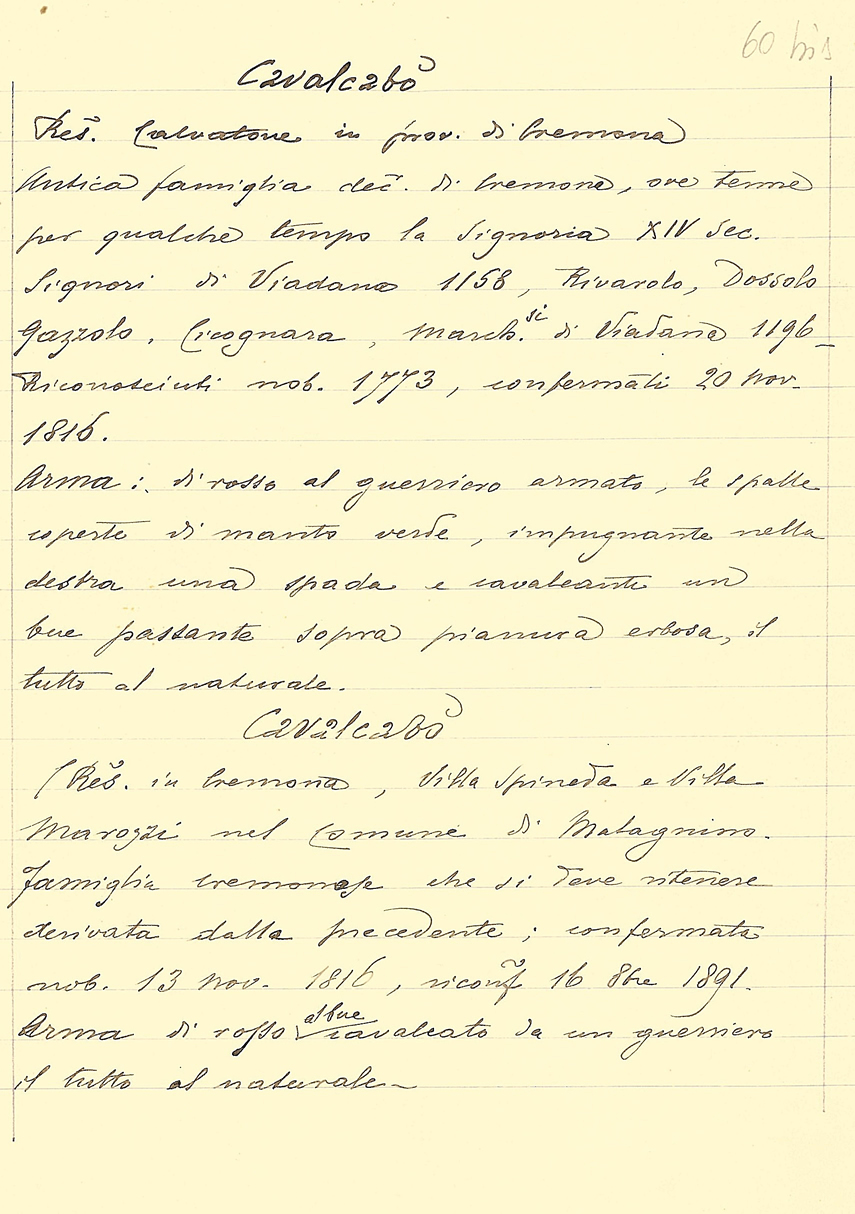 60 bis
Cavalcabò
Res. Calvatone in prov. di Cremona
Antica famiglia dec. di Cremona, ove tenne
per qualche tempo la Signoria XIV Sec.
Signori di Viadana 1158, Rivarolo, Dossolo
Gazzolo, Cicognara, March.si di Viadana 1196_
Riconosciuti nob. 1773, confermati 20 Nov.
1816.
Arma: di rosso al guerriero armato, le spalle
coperte di manto verde, impugnante nella
destra una spada e cavalcante un
bue passante sopra pianura erbosa, il
tutto al naturale.
Cavalcabò
(Res. in Cremona, Villa Spineda e Villa
Marozzi nel Comune di Malagnino.
Famiglia cremonese che si deve ritenere
derivata dalla precedente; confermata
nob. 13 Nov. 1816, riconf 16 8bre 1891.
Arma di rosso al bue cavalcato da un guerriero
il tutto al naturale_